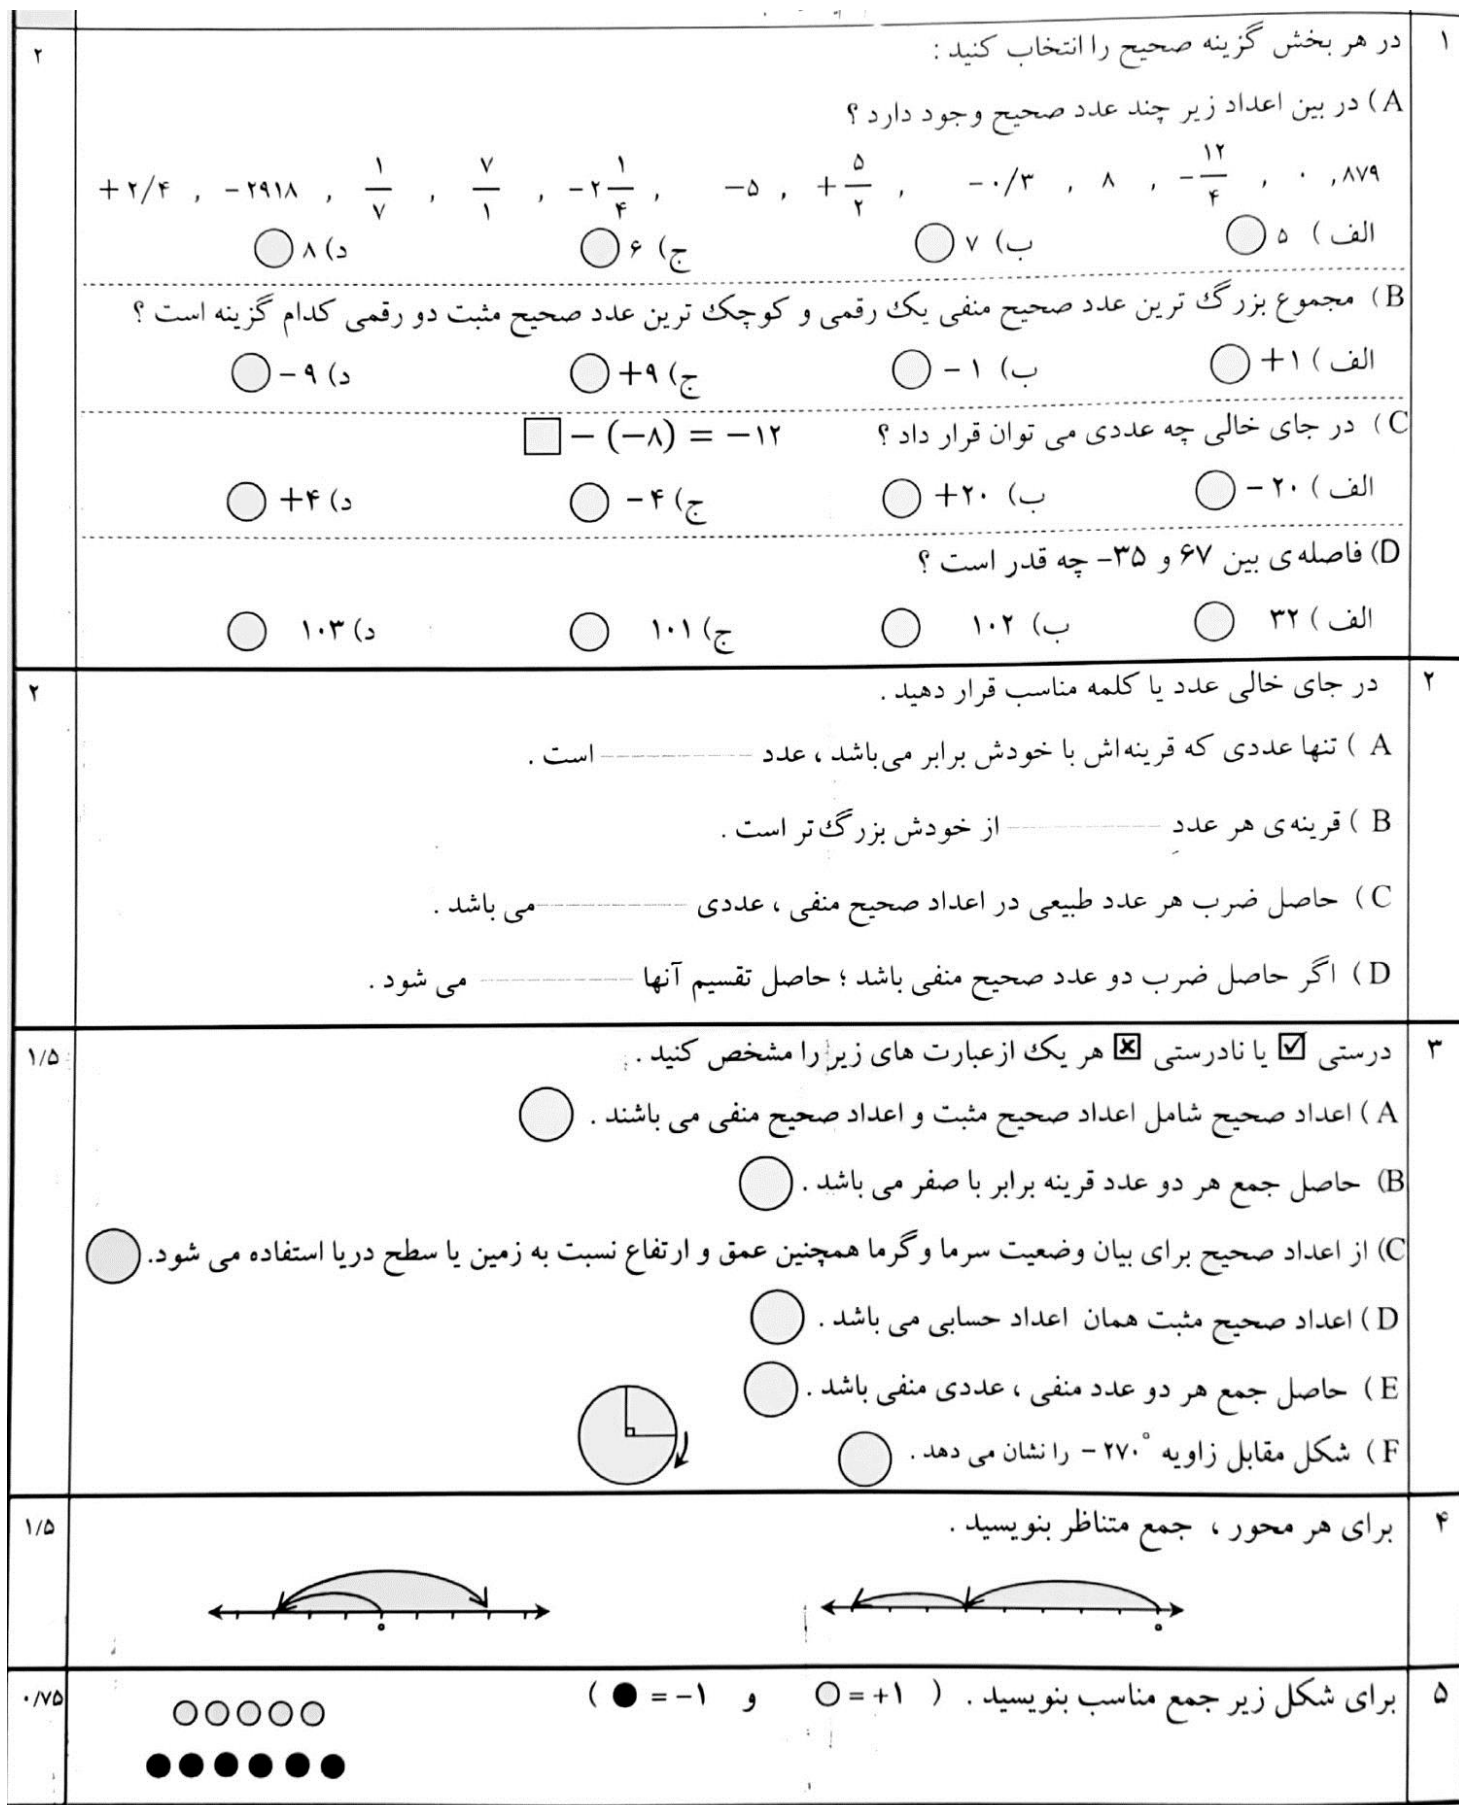 ۱ در هر بخش گزینه صحیح را انتخاب کنید : ۲
A ) در بین اعداد زیر چند عدد صحیح وجود دارد ؟
+۲/۴ , -۲۹۱۸ , ۱/۷ , ۷/۱ , -۲ ۱/۴ , -۵ , +۵/۲ , -۰/۳ , ۸ , -۱۲/۴ , ۰ , ۸۷۹
الف ) ۵ ب) ۷ ج) ۶ د) ۸
B ) مجموع بزرگ ترین عدد صحیح منفی یک رقمی و کوچک ترین عدد صحیح مثبت دو رقمی کدام گزینه است ؟
الف ) +۱ ب) -۱ ج) +۹ د) -۹
C ) در جای خالی چه عددی می توان قرار داد ؟ □ - (-۸) = -۱۲
الف ) -۲۰ ب) +۲۰ ج) -۴ د) +۴
D) فاصله‌ی بین ۶۷ و ۳۵- چه قدر است ؟
الف ) ۳۲ ب) ۱۰۲ ج) ۱۰۱ د) ۱۰۳
۲ در جای خالی عدد یا کلمه مناسب قرار دهید . ۲
A ) تنها عددی که قرینه‌اش با خودش برابر می‌باشد ، عدد ---------- است .
B ) قرینه‌ی هر عددِ ---------- از خودش بزرگ‌تر است .
C ) حاصل ضرب هر عدد طبیعی در اعداد صحیح منفی ، عددی ---------- می باشد .
D ) اگر حاصل ضرب دو عدد صحیح منفی باشد ؛ حاصل تقسیم آنها ---------- می شود .
۳ درستی ☑ یا نادرستی ☒ هر یک ازعبارت های زیر را مشخص کنید . ۱/۵
A ) اعداد صحیح شامل اعداد صحیح مثبت و اعداد صحیح منفی می باشند .
B) حاصل جمع هر دو عدد قرینه برابر با صفر می باشد .
C) از اعداد صحیح برای بیان وضعیت سرما و گرما همچنین عمق و ارتفاع نسبت به زمین یا سطح دریا استفاده می شود.
D ) اعداد صحیح مثبت همان اعداد حسابی می باشد .
E ) حاصل جمع هر دو عدد منفی ، عددی منفی باشد .
F ) شکل مقابل زاویه -۲۷۰° را نشان می دهد .
۴ برای هر محور ، جمع متناظر بنویسید . ۱/۵
۰ ۰
۵ برای شکل زیر جمع مناسب بنویسید . ( ○ = +۱ و ● = -۱ ) ۰/۷۵